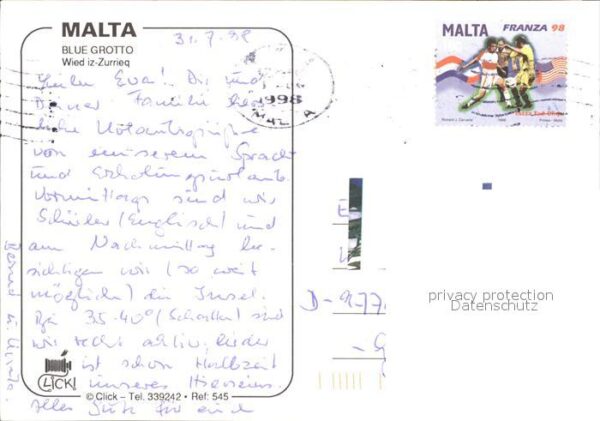 MALTA
BLUE GROTTO
Wied iz-Zurrieq
31.7.98
Liebe Eva! Dir und
Deiner Familie herz-
liche Urlaubsgrüße
von unserem Sprach
und Erholungsurlaub.
Vormittags sind wir
Schüler (Englisch) und
am Nachmittag be-
sichtigen wir (so weit
möglich) die Insel.
Bei 35-40° (Schatten) sind
wir recht aktiv. Leider
ist schon Halbzeit
unseres Hierseins.
Alles Gute für euch
Bernd u.
CLICK!
© Click – Tel. 339242 • Ref: 545
1998
MALTA
MALTA FRANZA 98
D-977
privacy protection
Datenschutz